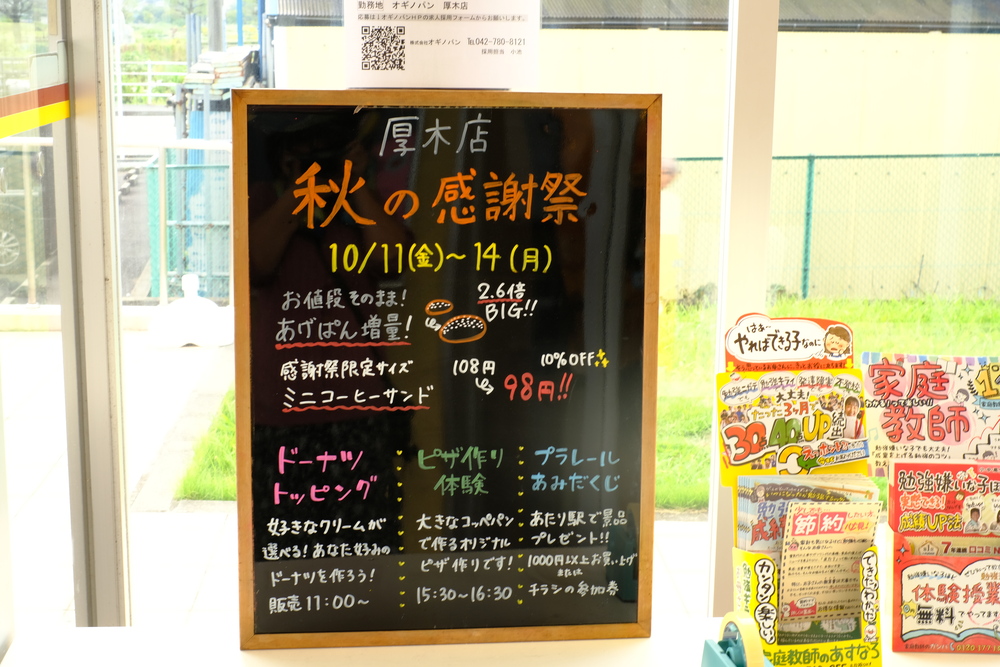 勤務地 オギノパン 厚木店
応募はオギノパンHPの求人採用フォームからお願いします。
株式会社オギノパン ℡042-780-8121
採用担当 小赤
厚木店
秋の感謝祭
10/11(金)～14(月)
お値段そのまま!
あげぱん増量!
2.6倍
BIG!!
感謝祭限定サイズ
ミニコーヒーサンド
108円
10%OFF
98円!!
ドーナツ
トッピング
好きなクリームが
選べる!あなた好みの
ドーナツを作ろう!
販売11:00～
ピザ作り
体験
大きなコッペパン
で作るオリジナル
ピザ作りです!
15:30～16:30
プラレール
あみだくじ
あたり駅で景品
プレゼント!!
1000円以上お買い上げ
または
チラシの参加券
はぁ…
やればできる子なのに
大丈夫!
たった3ヶ月で
30 40 UP続出
家庭
教師
勉強嫌いな子ほ
成績UP法
節約
カンタン!楽しい!
できたわかた
7年連続 口コミN
勉強嫌いな子ほど
体験授業
無料でやってます
家庭教師のあすなろ